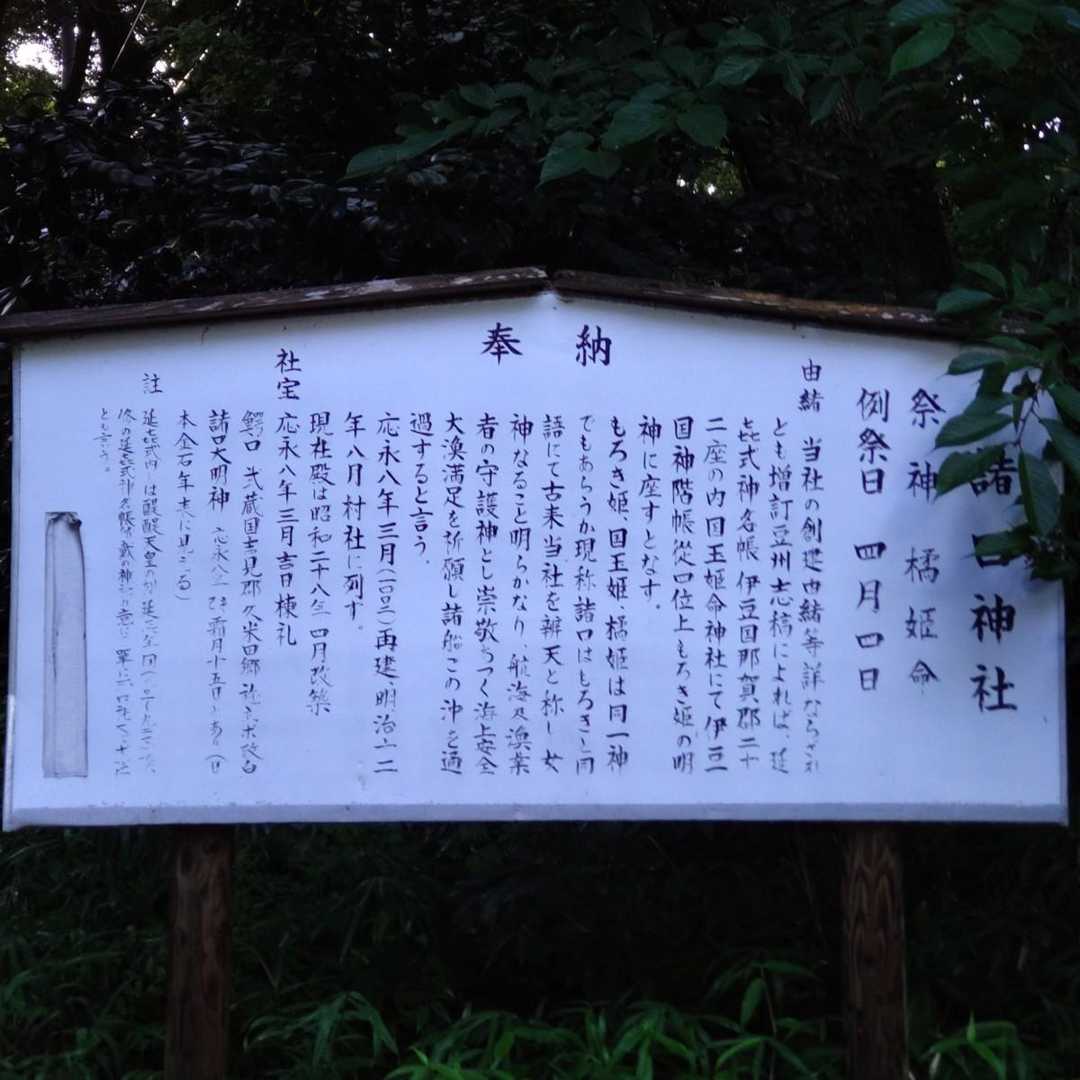 奉納
諸口神社
祭神 橘姫命
例祭日 四月四日
由緒 当社の創建由緒等詳ならざれ
とも増訂豆州志稿によれば、延
㐂式神名帳伊豆国那賀郡二十
二座の内国玉姫命神社にて伊豆
国神階帳従四位上もろき姫の明
神に座すとなす。
もろき姫、国玉姫、橘姫は同一神
でもあらうか現称諸口はもろきと同
語にて古来当社を辨天と称し女
神なること明らかなり、航海及漁業
者の守護神とし崇敬あつく海上安全
大漁満足を祈願し諸船この沖を通
過すると言う。
応永八年三月(一四〇一)再建、明治六二
年八月村社に列ず。
現社殿は昭和二十八年四月改築
社宝 応永八年三月吉日棟礼
鰐口 武蔵国吉見郡久米田郷
諸口大明神 霜月十五日とあり(日
本金石年表に見ゆる)
註 延㐂式内社は醍醐天皇の
とも言う。